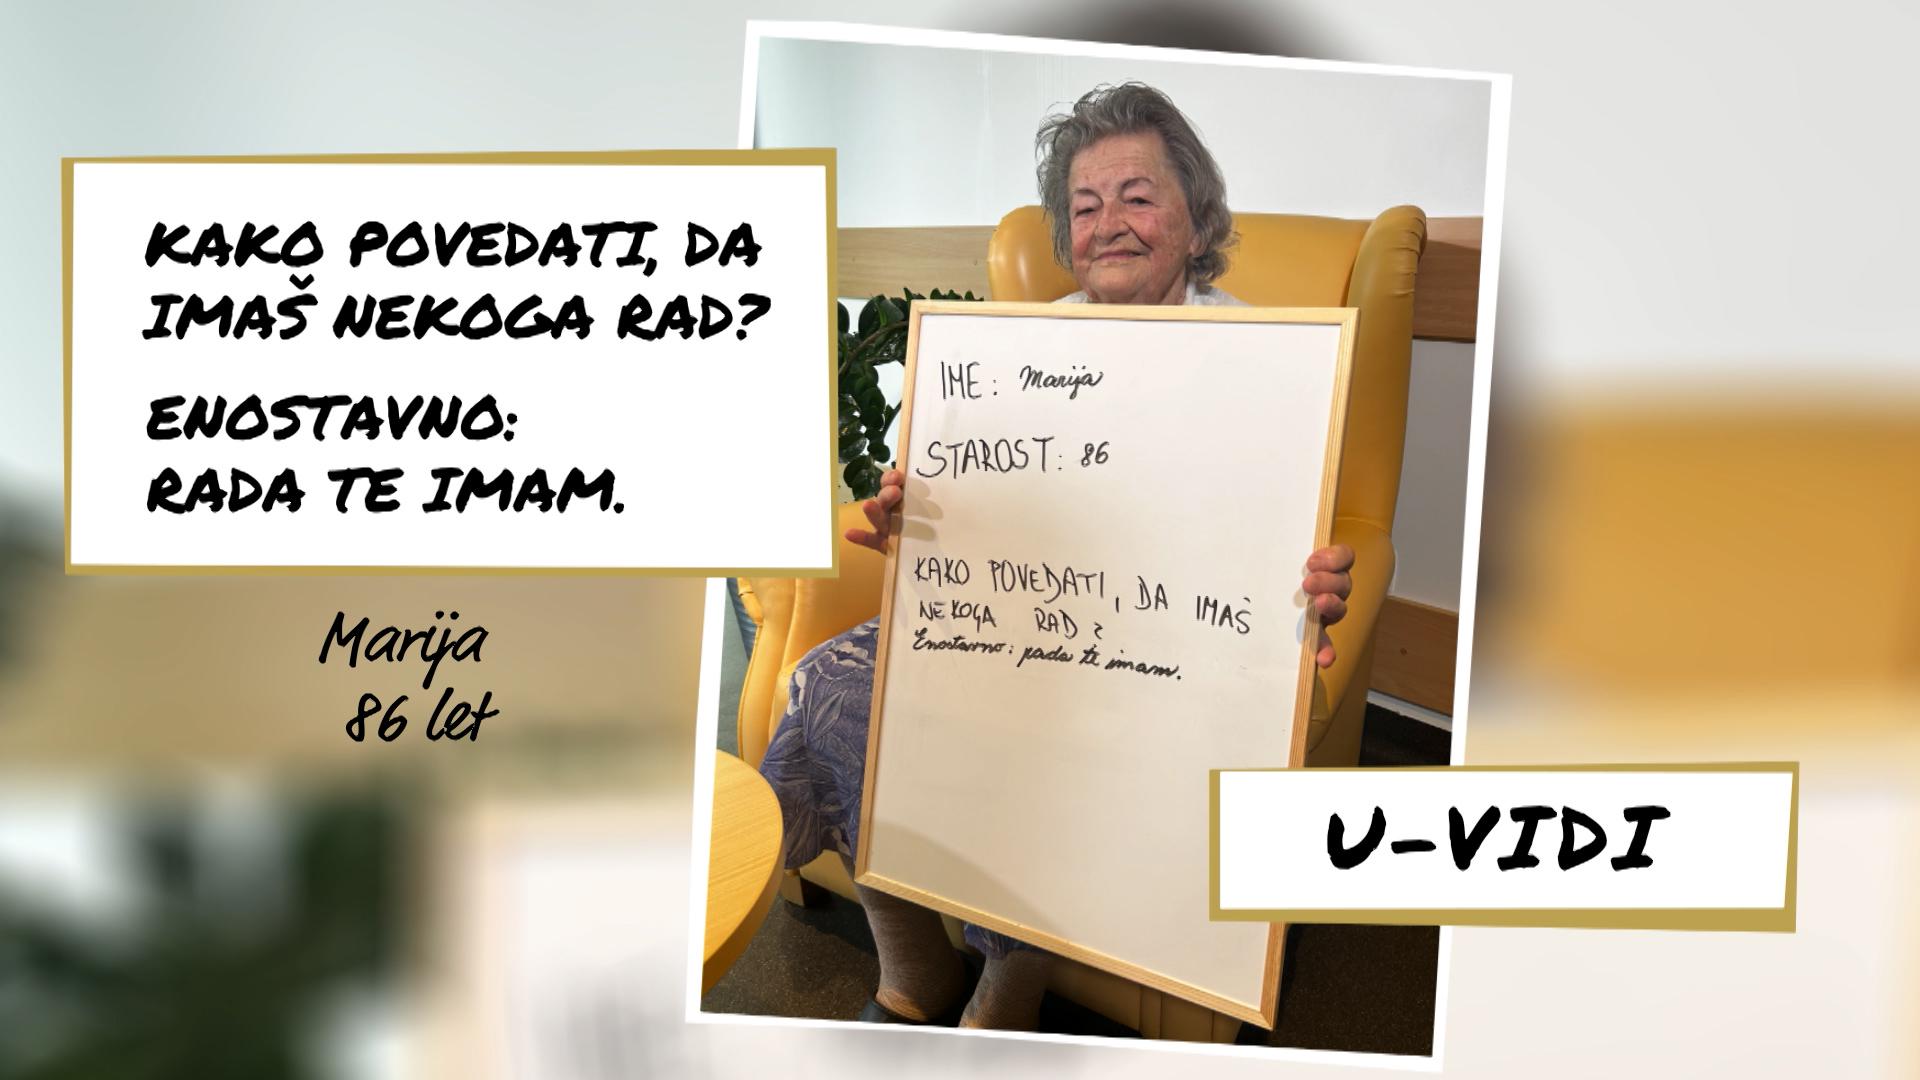 KAKO POVEDATI, DA
IMAŠ NEKOGA RAD?
ENOSTAVNO:
RADA TE IMAM.
Marija
86 let
IME: Marija
STAROST: 86
KAKO POVEDATI, DA IMAŠ
NEKOGA RAD?
Enostavno: rada te imam.
U-VIDI